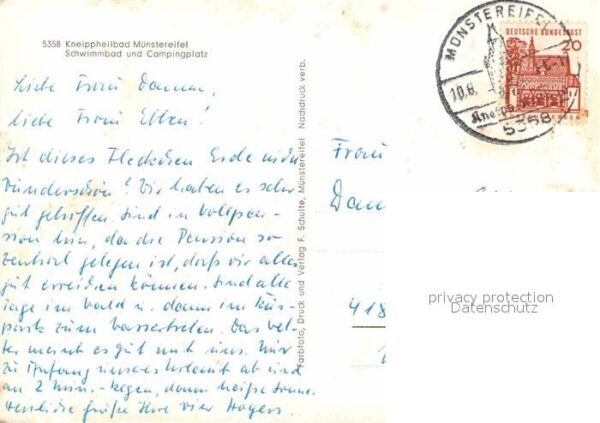 5358 Kneippheilbad Münstereifel
Schwimmbad und Campingplatz
Liebe Frau Damm,
liebe Frau Elben!
Ist dieses Fleckchen Erde nicht
wunderschön? Wir haben es sehr
gut getroffen. Sind in Vollpen-
sion hier, da die Pension so
zentral gelegen ist, daß wir alles
gut erreichen können. Sind alle
Tage im Wald u. dann im Kur-
park zum Wassertreten. Das Wet-
ter meint es gut mit uns. Nur
zu Anfang unseres Urlaubs ab und
an 2 Min.-Regen, dann heiße Sonne.
Herzliche Grüße Ihre vier
Farbfoto, Druck und Verlag F. Schulte, Münstereifel Nachdruck verb.
MÜNSTEREIFEL
10.8.
5358
DEUTSCHE BUNDESPOST
20
Frau
418
privacy protection
Datenschutz